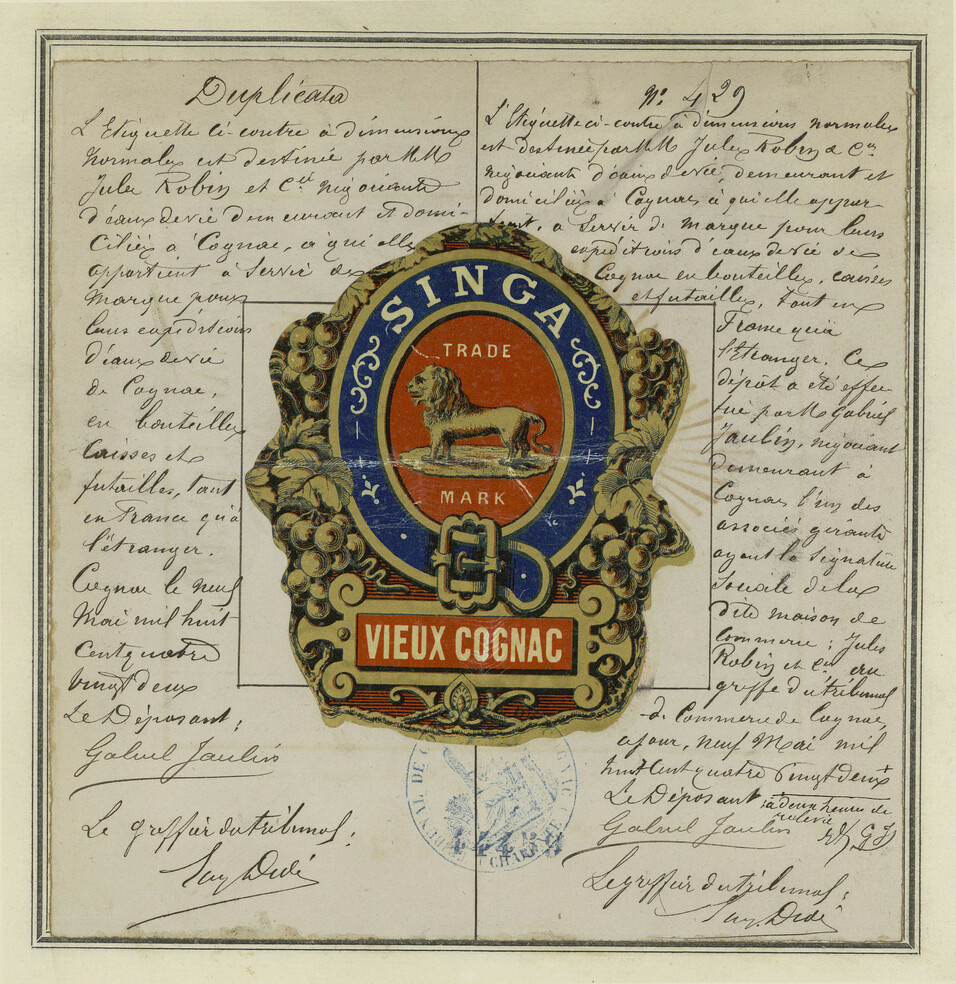 Duplicata
L'Etiquette ci-contre à dimensions
normales est destinée par MM
Jules Robin et Cie négociants
d'eaux de vie demeurant et domi-
ciliés à Cognac, à qui elle
appartient à servir de
marque pour
leurs expéditions
d'eaux de vie
de Cognac,
en bouteilles
caisses et
futailles, tant
en France qu'à
l'étranger.
Cognac le neuf
Mai mil huit
cent quatre
vingt deux
Le Déposant,
Gabriel Jaulin
Le greffier du tribunal,
No 429
L'Etiquette ci-contre à dimensions normales
est destinée par MM Jules Robin & Cie
négociants d'eaux de vie, demeurant et
domiciliés à Cognac à qui elle appar-
tient, à servir de marque pour leurs
expéditions d'eaux de vie de
Cognac en bouteilles, caisses
et futailles, tant en
France qu'à
l'Etranger. Ce
dépôt a été effec
tué par M Gabriel
Jaulin, négociant
demeurant à
Cognac l'un des
associés gérants
ayant la signature
sociale de la
dite maison de
Commerce : Jules
Robin et Cie au
greffe du tribunal
de Commerce de Cognac,
ce jour, neuf Mai mil
huit Cent quatre Vingt deux
Le Déposant
à deux heures de
relevée
Gabriel Jaulin
GJ
Le greffier du tribunal :
SINGA
TRADE
MARK
VIEUX COGNAC